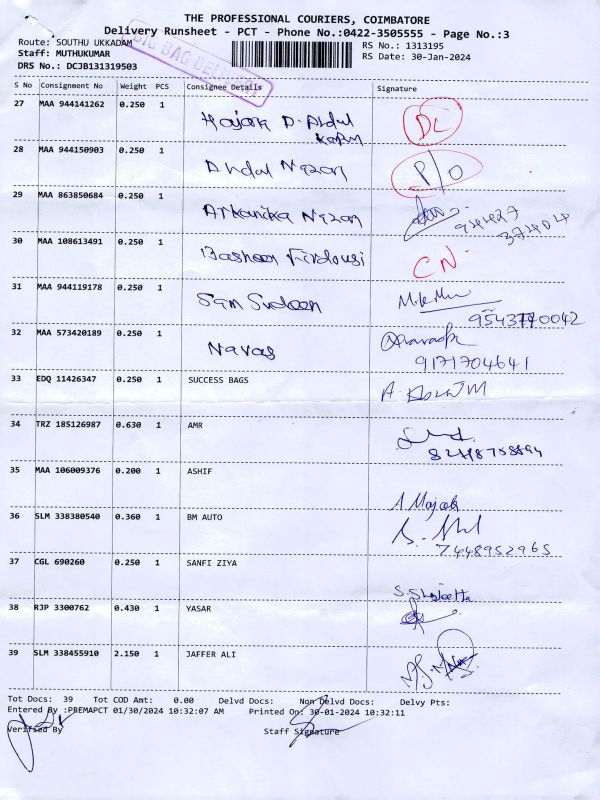 THE PROFESSIONAL COURIERS, COIMBATORE
Delivery Runsheet - PCT - Phone No.:0422-3505555 - Page No.:3
Route: SOUTHU UKKADAM
RS No.: 1313195
Staff: MUTHUKUMAR
RS Date: 30-Jan-2024
DRS No.: DCJB131319503
BIG BAG
S No Consignment No Weight PCS Consignee Details Signature
27 MAA 944141262 0.250 1 DL
28 MAA 944150903 0.250 1 P/O
29 MAA 863850684 0.250 1 Nizam
30 MAA 108613491 0.250 1 Firdousi CN
31 MAA 944119178 0.250 1 Sam
32 MAA 573420189 0.250 1 Navas
9171704641
33 EDQ 11426347 0.250 1 SUCCESS BAGS
34 TRZ 185126987 0.630 1 AMR
35 MAA 106009376 0.200 1 ASHIF
36 SLM 338380540 0.360 1 BM AUTO
7448952965
37 CGL 690260 0.250 1 SANFI ZIYA
38 RJP 3300762 0.430 1 YASAR
39 SLM 338455910 2.150 1 JAFFER ALI
Tot Docs: 39 Tot COD Amt: 0.00 Delvd Docs: Non Delvd Docs: Delvy Pts:
Entered By :PREMAPCT 01/30/2024 10:32:07 AM Printed On: 30-01-2024 10:32:11
Verified By Staff Signature